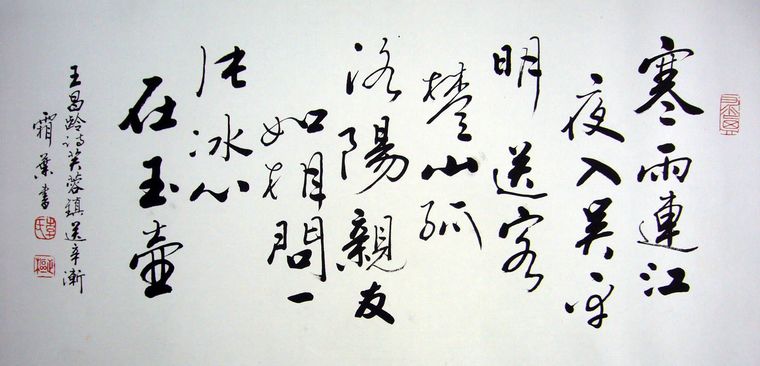 寒雨連江
夜入吴平
明送客
楚山孤
洛陽親友
如相問一
片冰心
在玉壺
王昌龄诗芙蓉鎮送辛漸
霜葉書